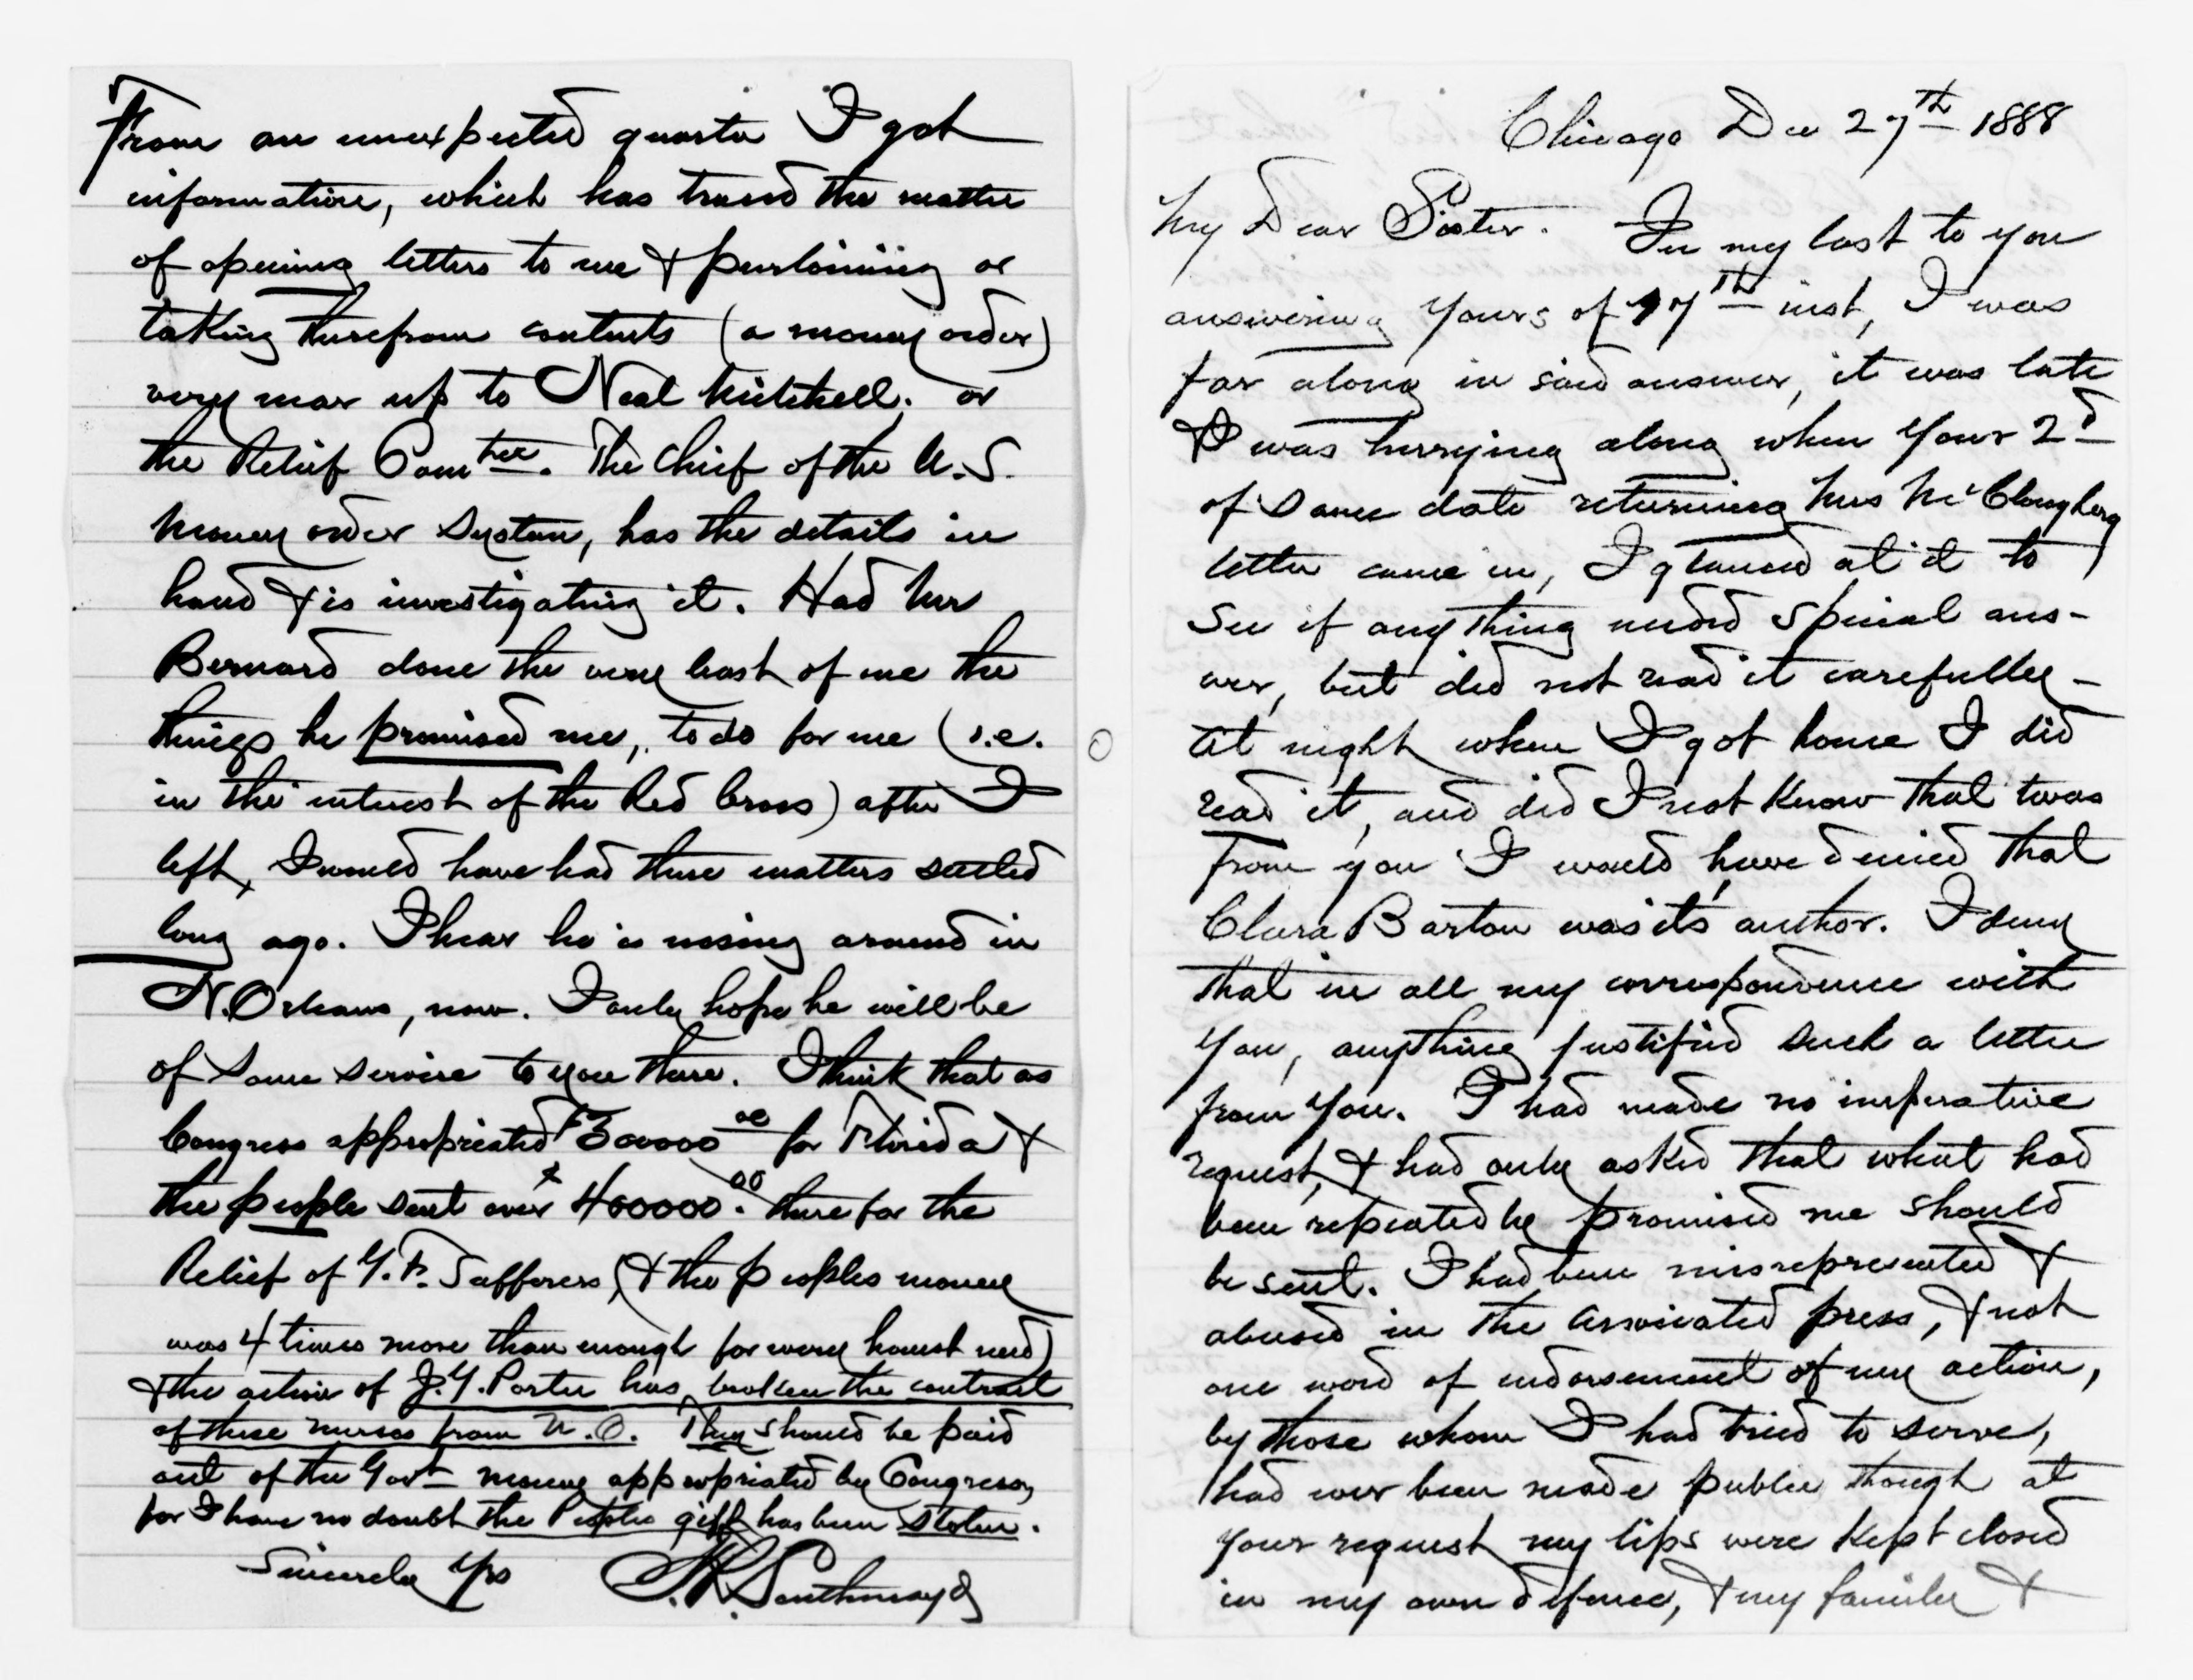 From an unexpected quarter I got
information, which has traced the matter
of opening letters to me & purloining or
taking therefrom contents (a money order)
very near up to Neal Mitchell. or
the Relief Comtee. The Chief of the U.S.
Money order System, has the details in
hand & is investigating it. Had Mr
Bernard done the very least of me the
things he promised me, to do for me (i.e.
in the interest of the Red Cross) after I
left, I would have had these matters settled
long ago. I hear he is nosing around in
N. Orleans, now. I only hope he will be
of some service to you there. I think that as
Congress appropriated $300000 00 for Florida &
the people sent over $400000.00 there for the
Relief of Y.F. Sufferers, (& the peoples money
was 4 times more than enough for every honest need)
& the action of J.Y. Porter has broken the contract
of these nurses from N.O. They should be paid
out of the Govt money appropriated by Congress,
for I have no doubt the Peoples gift has been stolen.
Sincerely Yrs F.R. Southmayd
Chicago Dec 27th 1888
My Dear Sister. In my last to you
answering yours of 17th inst, I was
far along in said answer, it was late
& I was hurrying along when your 2d
of same date returning Mrs McClaughery
letter came in, I glanced at it to
see if anything needed special ans-
wer, but did not read it carefully -
At night when I got home I did
read it, and did I not know that twas
from you I would have denied that
Clara Barton was its author. I deny
that in all my correspondence with
you, anything justified such a letter
from you. I had made no imperative
request, & had only asked that what had
been repeatedly promised me should
be sent. I had been misrepresented &
abused in the associated press, & not
one word of endorsement of my action,
by those whom I had tried to serve,
had ever been made public though at
your request my lips were kept closed
in my own defence, & my family &